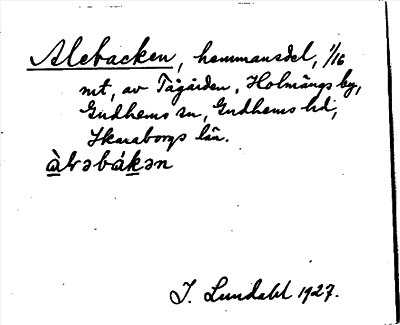 Alebacken, hemmansdel, 1/16
mt, av Tågården, Holmängs by,
Gudhems sn, Gudhems hd,
Skaraborgs län.
àləbákən
J. Lundahl 1927.